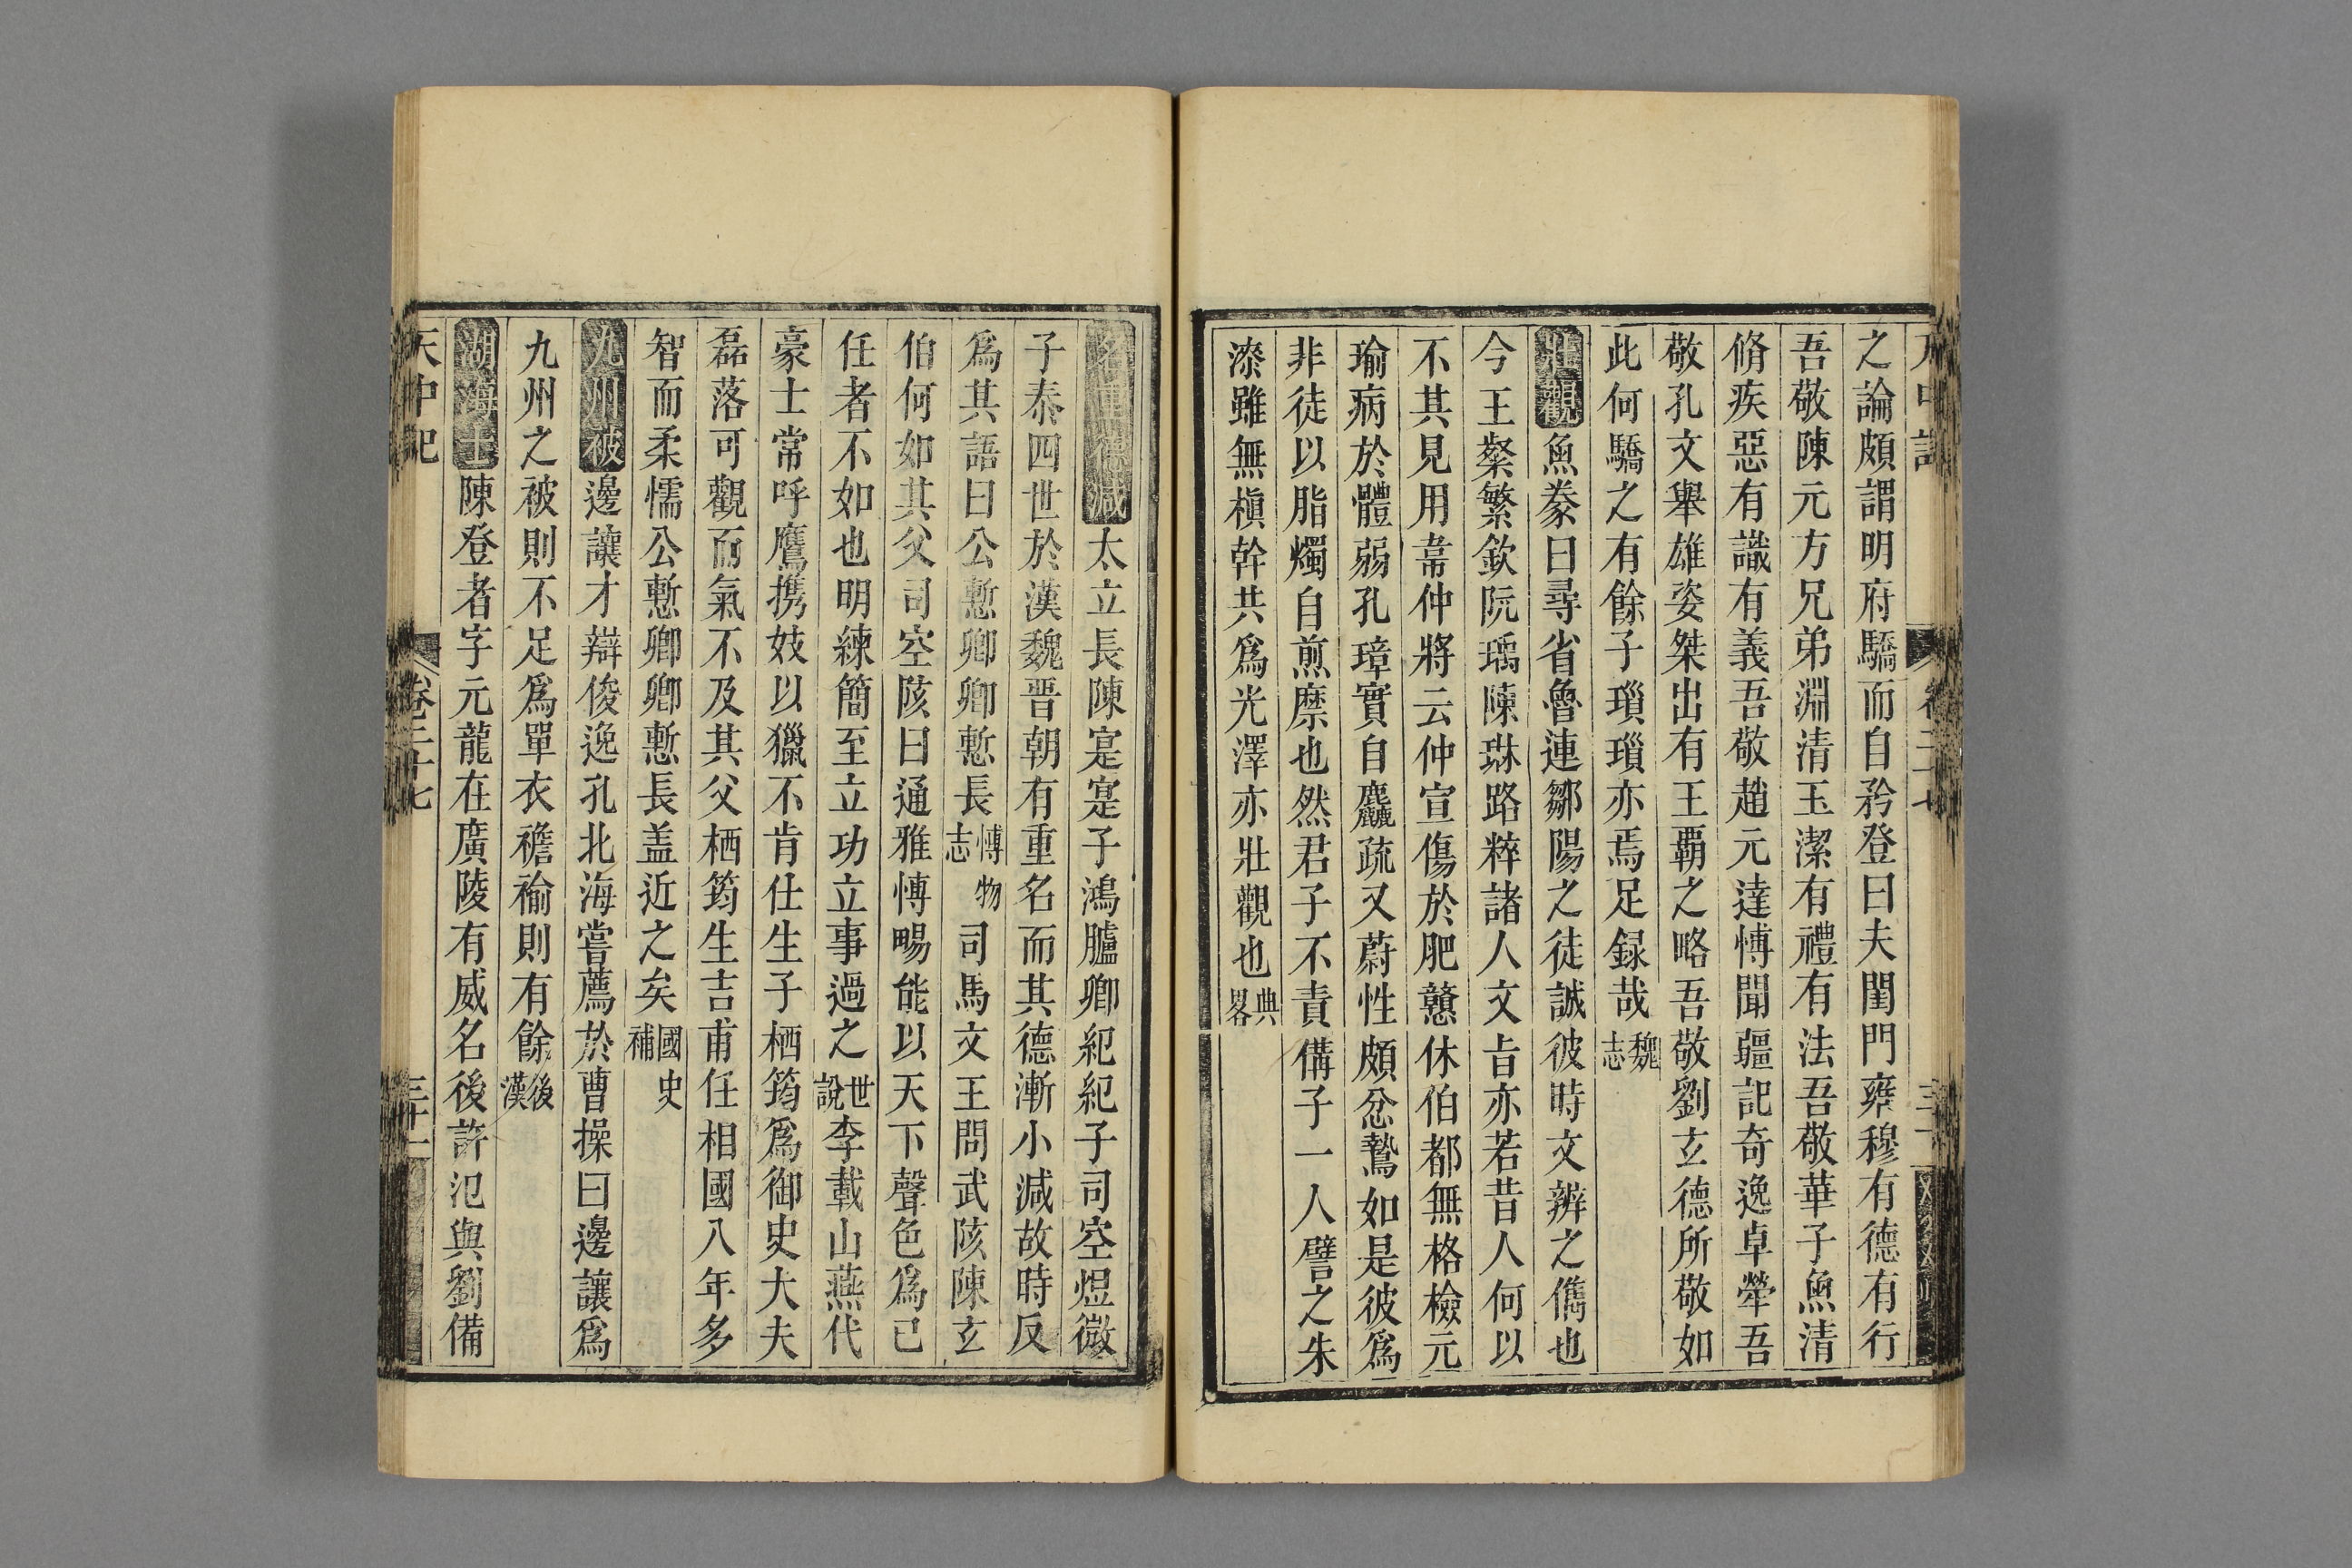 之論頗謂明府驕而自矜登曰夫閨門雍穆有德有行
吾敬陳元方兄弟淵清玉潔有禮有法吾敬華子魚清
脩疾惡有識有義吾敬趙元達博聞疆記奇逸卓犖吾
敬孔文舉雄姿桀出有王覇之略吾敬劉玄德所敬如
此何驕之有餘子瑣瑣亦焉足録哉魏志
壯觀魚豢曰尋省魯連鄒陽之徒誠彼時文辨之儁也
今王粲繁欽阮瑀陳琳路粹諸人文㫖亦若昔人何以
不其見用韋仲將云仲宣傷於肥戇休伯都無格檢元
瑜病於體弱孔璋實自麤疏文蔚性頗忿鷙如是彼爲
非徒以脂燭自煎糜也然君子不責備于一人譬之朱
漆雖無楨幹共爲光澤亦壯觀也典畧
名重德減太丘長陳寔寔子鴻臚卿紀紀子司空煜微
子泰四世於漢魏晋朝有重名而其德漸小減故時反
爲其語曰公慙卿卿慙長博物志司馬文王問武陔陳玄
伯何如其父司空陔曰通雅博暢能以天下聲色爲已
任者不如也明練簡至立功立事過之世說李載山燕代
豪士常呼鷹携妓以獵不肯仕生子栖筠爲御史大夫
磊落可觀而氣不及其父栖筠生吉甫任相國八年多
智而柔懦公慙卿卿慙長盖近之矣國史補
九州被邊讓才辯俊逸孔北海嘗薦於曹操曰邊讓爲
九州之被則不足爲單衣襜褕則有餘後漢
湖海士陳登者字元龍在廣陵有威名後許汜與劉備
天中記
卷二十七
三十一